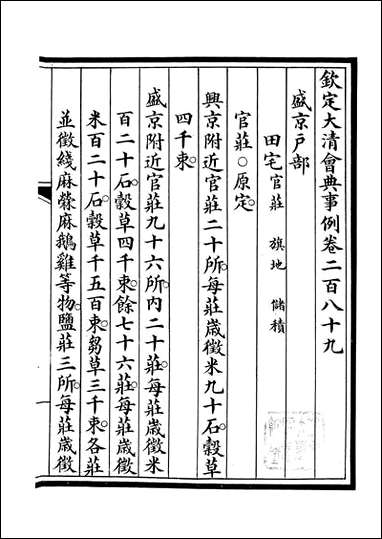 欽定大清會典事例卷二百八十九
盛京戶部
田宅 官莊 旗地 儲積
官莊○原定
興京附近官莊二十所每莊歲徵米九十石穀草
四千束
盛京附近官莊九十六所內二十莊每莊歲徵米
百二十石穀草四千束餘七十六莊每莊歲徵
米百二十石穀草千五百束芻草三千束各莊
並徵綫麻檾麻鵝雞等物鹽莊三所每莊歲徵